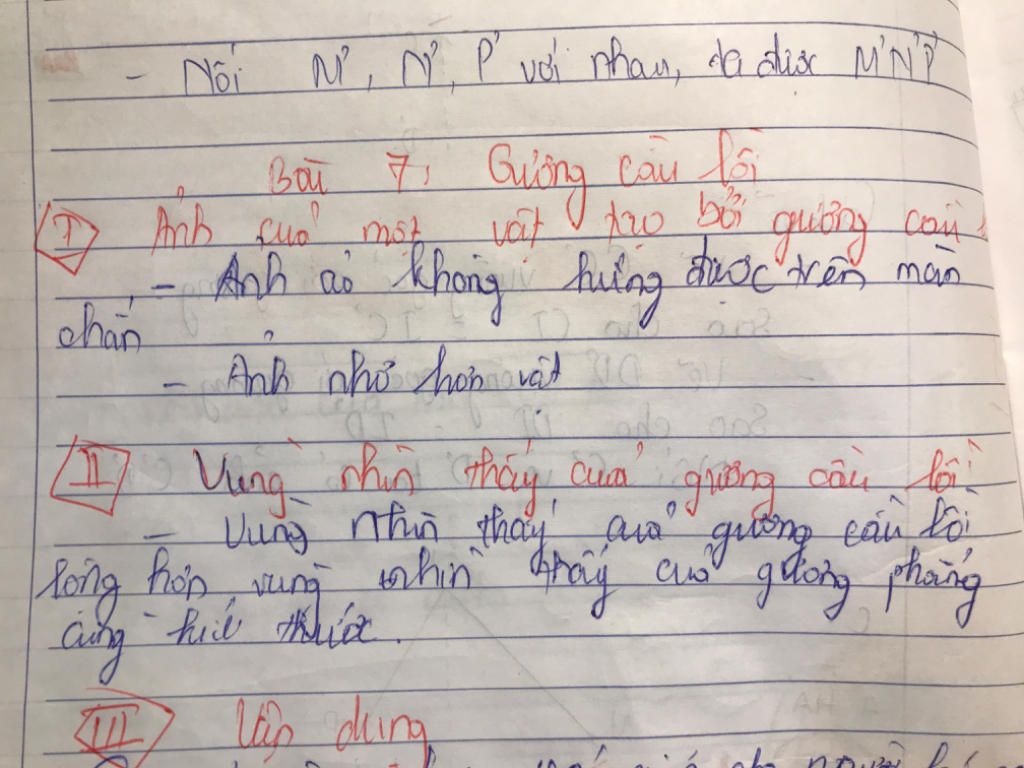 - Nối M', N', P' với nhau, ta được M'N'P'
Bài 7: Gương cầu lồi
I Ảnh của một vật tạo bởi gương cầu
- Ảnh ảo không hứng được trên màn
chắn
- Ảnh nhỏ hơn vật
II Vùng nhìn thấy của gương cầu lồi
- Vùng nhìn thấy của gương cầu lồi
rộng hơn vùng nhìn thấy của gương phẳng
cùng kích thước.
III Vận dụng